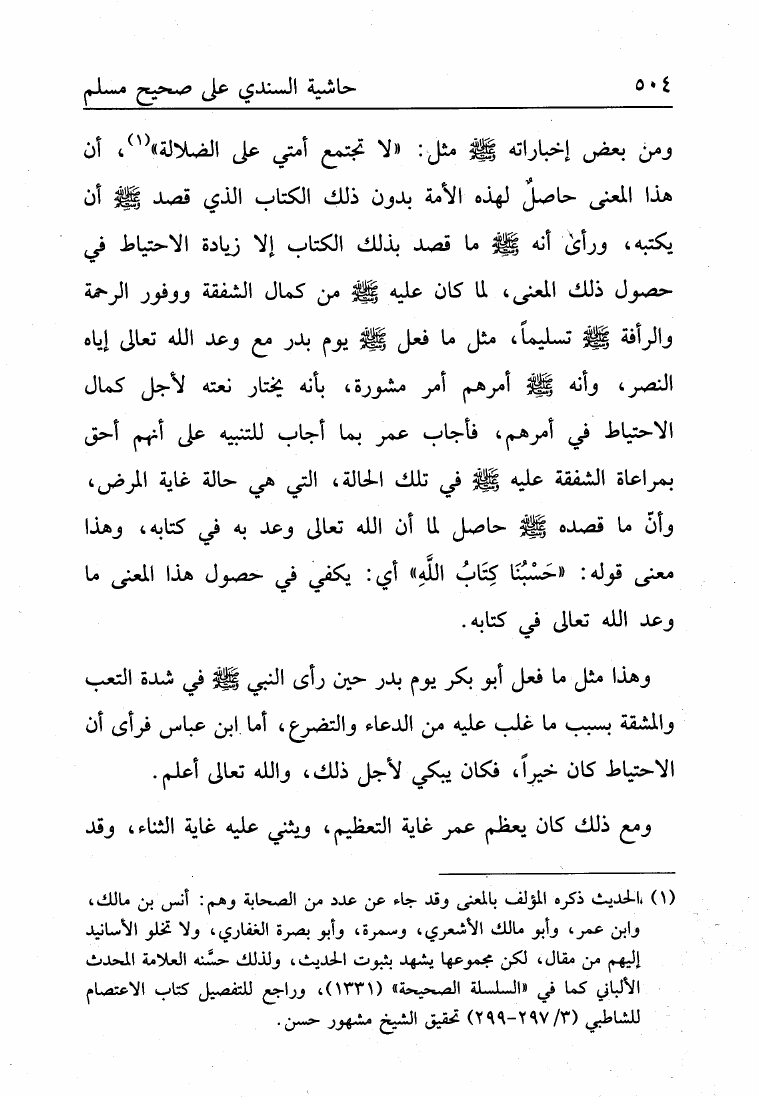 ٥٠٤ حاشية السندي على صحيح مسلم
ومن بعض إخباراته ﷺ مثل: «لا تجتمع أمتي على الضلالة»(١)، أن
هذا المعنى حاصلٌ لهذه الأمة بدون ذلك الكتاب الذي قصد ﷺ أن
يكتبه، ورأىٰ أنه ﷺ ما قصد بذلك الكتاب إلا زيادة الاحتياط في
حصول ذلك المعنى، لما كان عليه ﷺ من كمال الشفقة ووفور الرحمة
والرأفة ﷺ تسليماً، مثل ما فعل ﷺ يوم بدر مع وعد الله تعالى إياه
النصر، وأنه ﷺ أمرهم أمر مشورة، بأنه يختار نعته لأجل كمال
الاحتياط في أمرهم، فأجاب عمر بما أجاب للتنبيه على أنهم أحق
بمراعاة الشفقة عليه ﷺ في تلك الحالة، التي هي حالة غاية المرض،
وأنّ ما قصده ﷺ حاصل لما أن الله تعالى وعد به في كتابه، وهذا
معنى قوله: «حَسْبُنَا كِتَابُ اللَّهِ» أي: يكفي في حصول هذا المعنى ما
وعد الله تعالى في كتابه.
وهذا مثل ما فعل أبو بكر يوم بدر حين رأى النبي ﷺ في شدة التعب
والمشقة بسبب ما غلب عليه من الدعاء والتضرع، أما ابن عباس فرأى أن
الاحتياط كان خيراً، فكان يبكي لأجل ذلك، والله تعالى أعلم.
ومع ذلك كان يعظم عمر غاية التعظيم، ويثني عليه غاية الثناء، وقد
(١) الحديث ذكره المؤلف بالمعنى وقد جاء عن عدد من الصحابة وهم: أنس بن مالك،
وابن عمر، وأبو مالك الأشعري، وسمرة، وأبو بصرة الغفاري، ولا تخلو الأسانيد
إليهم من مقال، لكن مجموعها يشهد بثبوت الحديث، ولذلك حسَّنه العلامة المحدث
الألباني كما في «السلسلة الصحيحة» (١٣٣١)، وراجع للتفصيل كتاب الاعتصام
للشاطبي (٣/ ٢٩٧-٢٩٩) تحقيق الشيخ مشهور حسن.